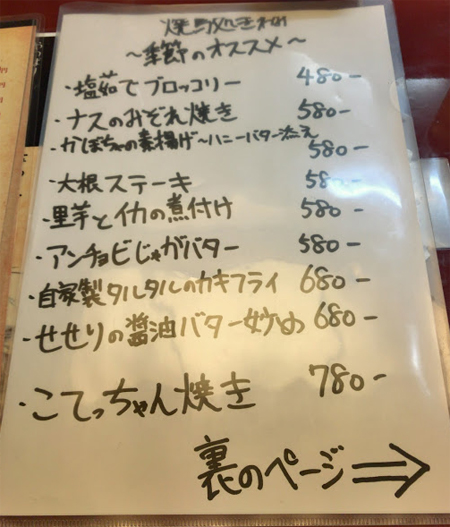 焼鳥処き
～季節のオススメ～
・塩茹でブロッコリー 480-
・ナスのみぞれ焼き 580-
・かぼちゃの素揚げ～ハニーバター添え 580-
・大根ステーキ 580-
・里芋とイカの煮付け 580-
・アンチョビじゃがバター 580-
・自家製タルタルのカキフライ 680-
・せせりの醤油バター炒め 680-
・こてっちゃん焼き 780-
裏のページ⇒